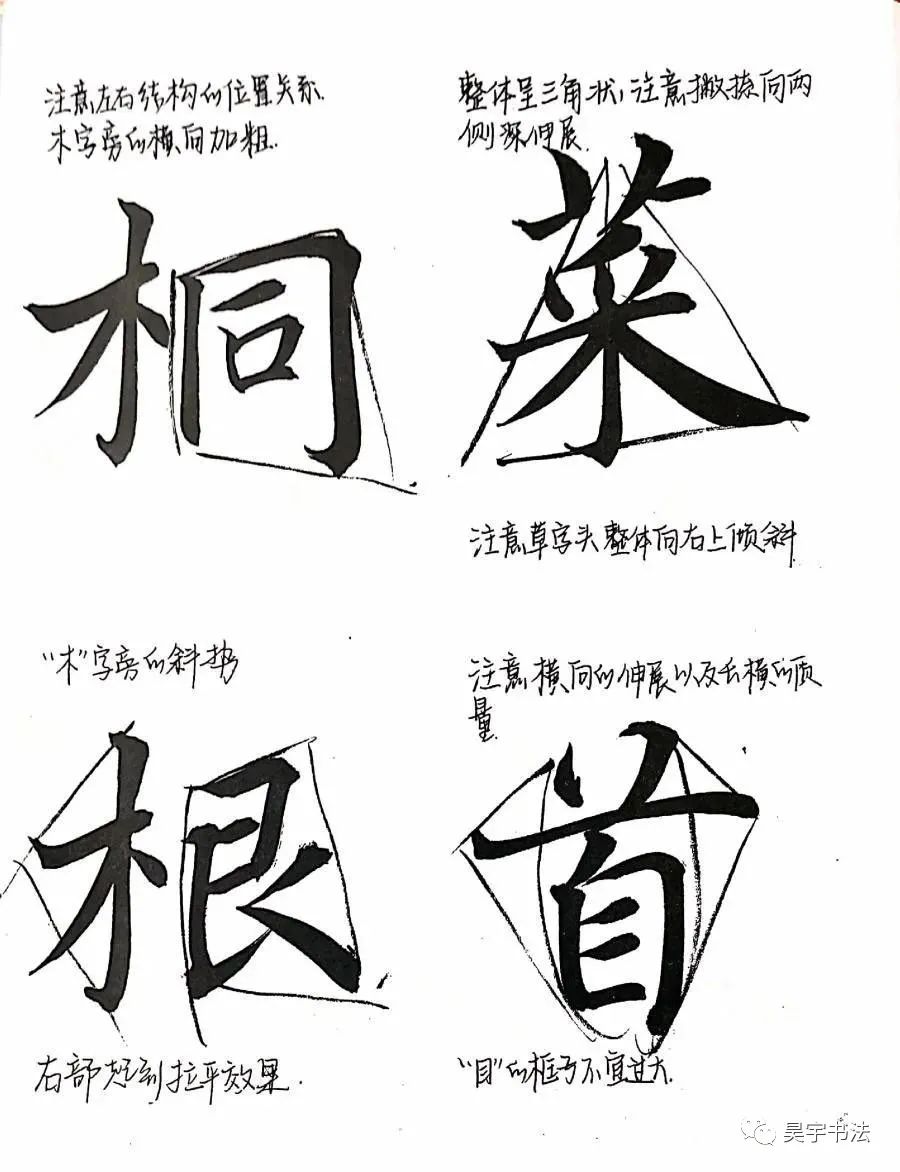 注意左右结构的位置关系.
木字旁的横向加粗.
桐
整体呈三角状,注意撇捺向两
侧深伸展.
菜
注意草字头整体向右上倾斜
"木"字旁的斜势
根
右部起到拉平效果.
注意横向的伸展以及长横的质
量.
首
"目"的框子不宜过大.
昊宇书法